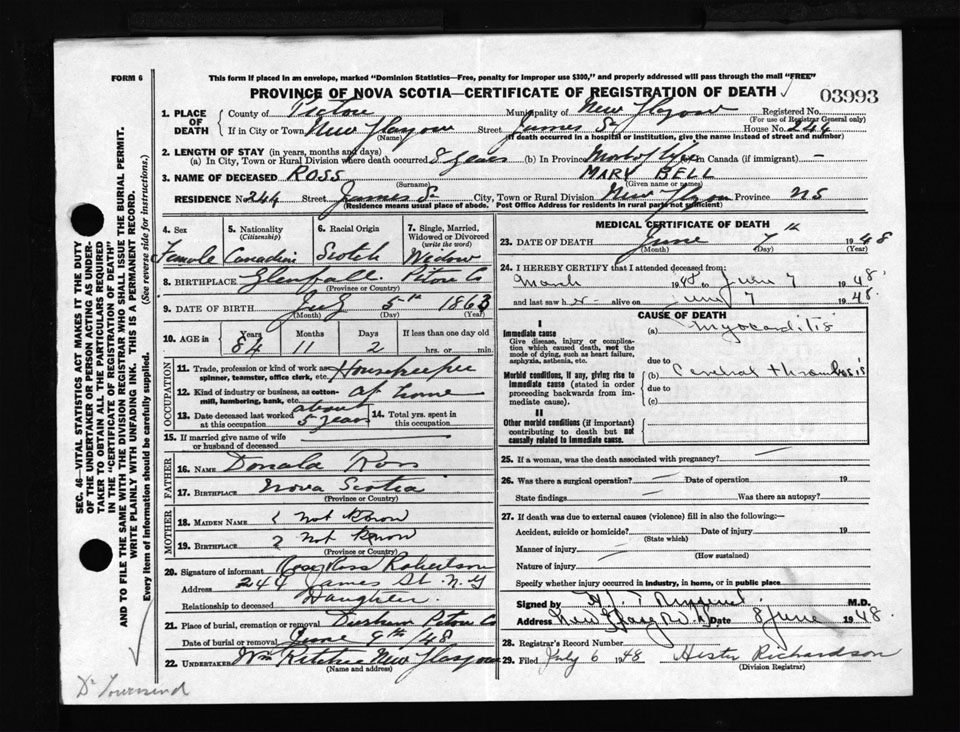 FORM 6
This form if placed in an envelope, marked "Dominion Statistics—Free, penalty for improper use $300," and properly addressed will pass through the mail "FREE"
PROVINCE OF NOVA SCOTIA—CERTIFICATE OF REGISTRATION OF DEATH
03993
1. PLACE OF DEATH
County of Pictou Municipality of New Glasgow Registered No.
(For use of Registrar General only)
If in City or Town New Glasgow Street James St. House No. 244
(Name) (If death occurred in a hospital or institution, give the name instead of street and number)
2. LENGTH OF STAY (in years, months and days)
(a) In City, Town or Rural Division where death occurred 8 years (b) In Province Most of life in Canada (if immigrant) —
3. NAME OF DECEASED ROSS MARY BELL
(Surname) (Given name or names)
RESIDENCE No. 244 Street James St City, Town or Rural Division New Glasgow Province NS
(Residence means usual place of abode. Post Office Address for residents in rural parts not sufficient)
4. Sex 5. Nationality (Citizenship) 6. Racial Origin 7. Single, Married, Widowed or Divorced (write the word)
Female Canadian Scotch Widow
8. BIRTHPLACE Pictou Co
(Province or Country)
9. DATE OF BIRTH 5th 1863
(Month) (Day) (Year)
10. AGE in Years Months Days If less than one day old
84 11 2 hrs. or min.
OCCUPATION
11. Trade, profession or kind of work as spinner, teamster, office clerk, etc. Housekeeper
12. Kind of industry or business, as cotton-mill, lumbering, bank, etc. at home
13. Date deceased last worked at this occupation about 5 years 14. Total yrs. spent in this occupation
15. If married give name of wife or husband of deceased
FATHER
16. NAME Donald Ross
17. BIRTHPLACE Nova Scotia
(Province or Country)
MOTHER
18. MAIDEN NAME not know
19. BIRTHPLACE ? not know
(Province or Country)
20. Signature of informant Ross Robertson
Address 244 James St. N.G
Relationship to deceased Daughter
21. Place of burial, cremation or removal Durham Pictou Co
Date of burial or removal June 9th /48
22. UNDERTAKER Wm Ritchie New Glasgow
(Name and address)
MEDICAL CERTIFICATE OF DEATH
23. DATE OF DEATH June 7th 1948
(Month) (Day) (Year)
24. I HEREBY CERTIFY that I attended deceased from:
March 19 to June 7 1948.
and last saw h er alive on June 7 1948.
CAUSE OF DEATH
I
Immediate cause
Give disease, injury or complication which caused death, not the mode of dying, such as heart failure, asphyxia, asthenia, etc.
(a) Myocarditis
due to
Morbid conditions, if any, giving rise to immediate cause (stated in order proceeding backwards from immediate cause).
(b) Cerebral thrombosis
due to
(c)
II
Other morbid conditions (if important) contributing to death but not causally related to immediate cause.
25. If a woman, was the death associated with pregnancy?
26. Was there a surgical operation? Date of operation 19
State findings Was there an autopsy?
27. If death was due to external causes (violence) fill in also the following:—
Accident, suicide or homicide? Date of injury 19
(State which)
Manner of injury
(How sustained)
Nature of injury
Specify whether injury occurred in industry, in home, or in public place
Signed by M.D.
Address New Glasgow N.S. Date 8 June 1948.
28. Registrar's Record Number
29. Filed July 6 1948 Hester Richardson
(Division Registrar)
SEC. 46—VITAL STATISTICS ACT MAKES IT THE DUTY
OF THE UNDERTAKER OR PERSON ACTING AS UNDER-
TAKER TO OBTAIN ALL THE PARTICULARS REQUIRED
IN THE "CERTIFICATE OF REGISTRATION OF DEATH"
AND TO FILE THE SAME WITH THE DIVISION REGISTRAR WHO SHALL ISSUE THE BURIAL PERMIT.
WRITE PLAINLY WITH UNFADING INK. THIS IS A PERMANENT RECORD.
Every item of information should be carefully supplied. (See reverse side for instructions.)
Dr Townsend